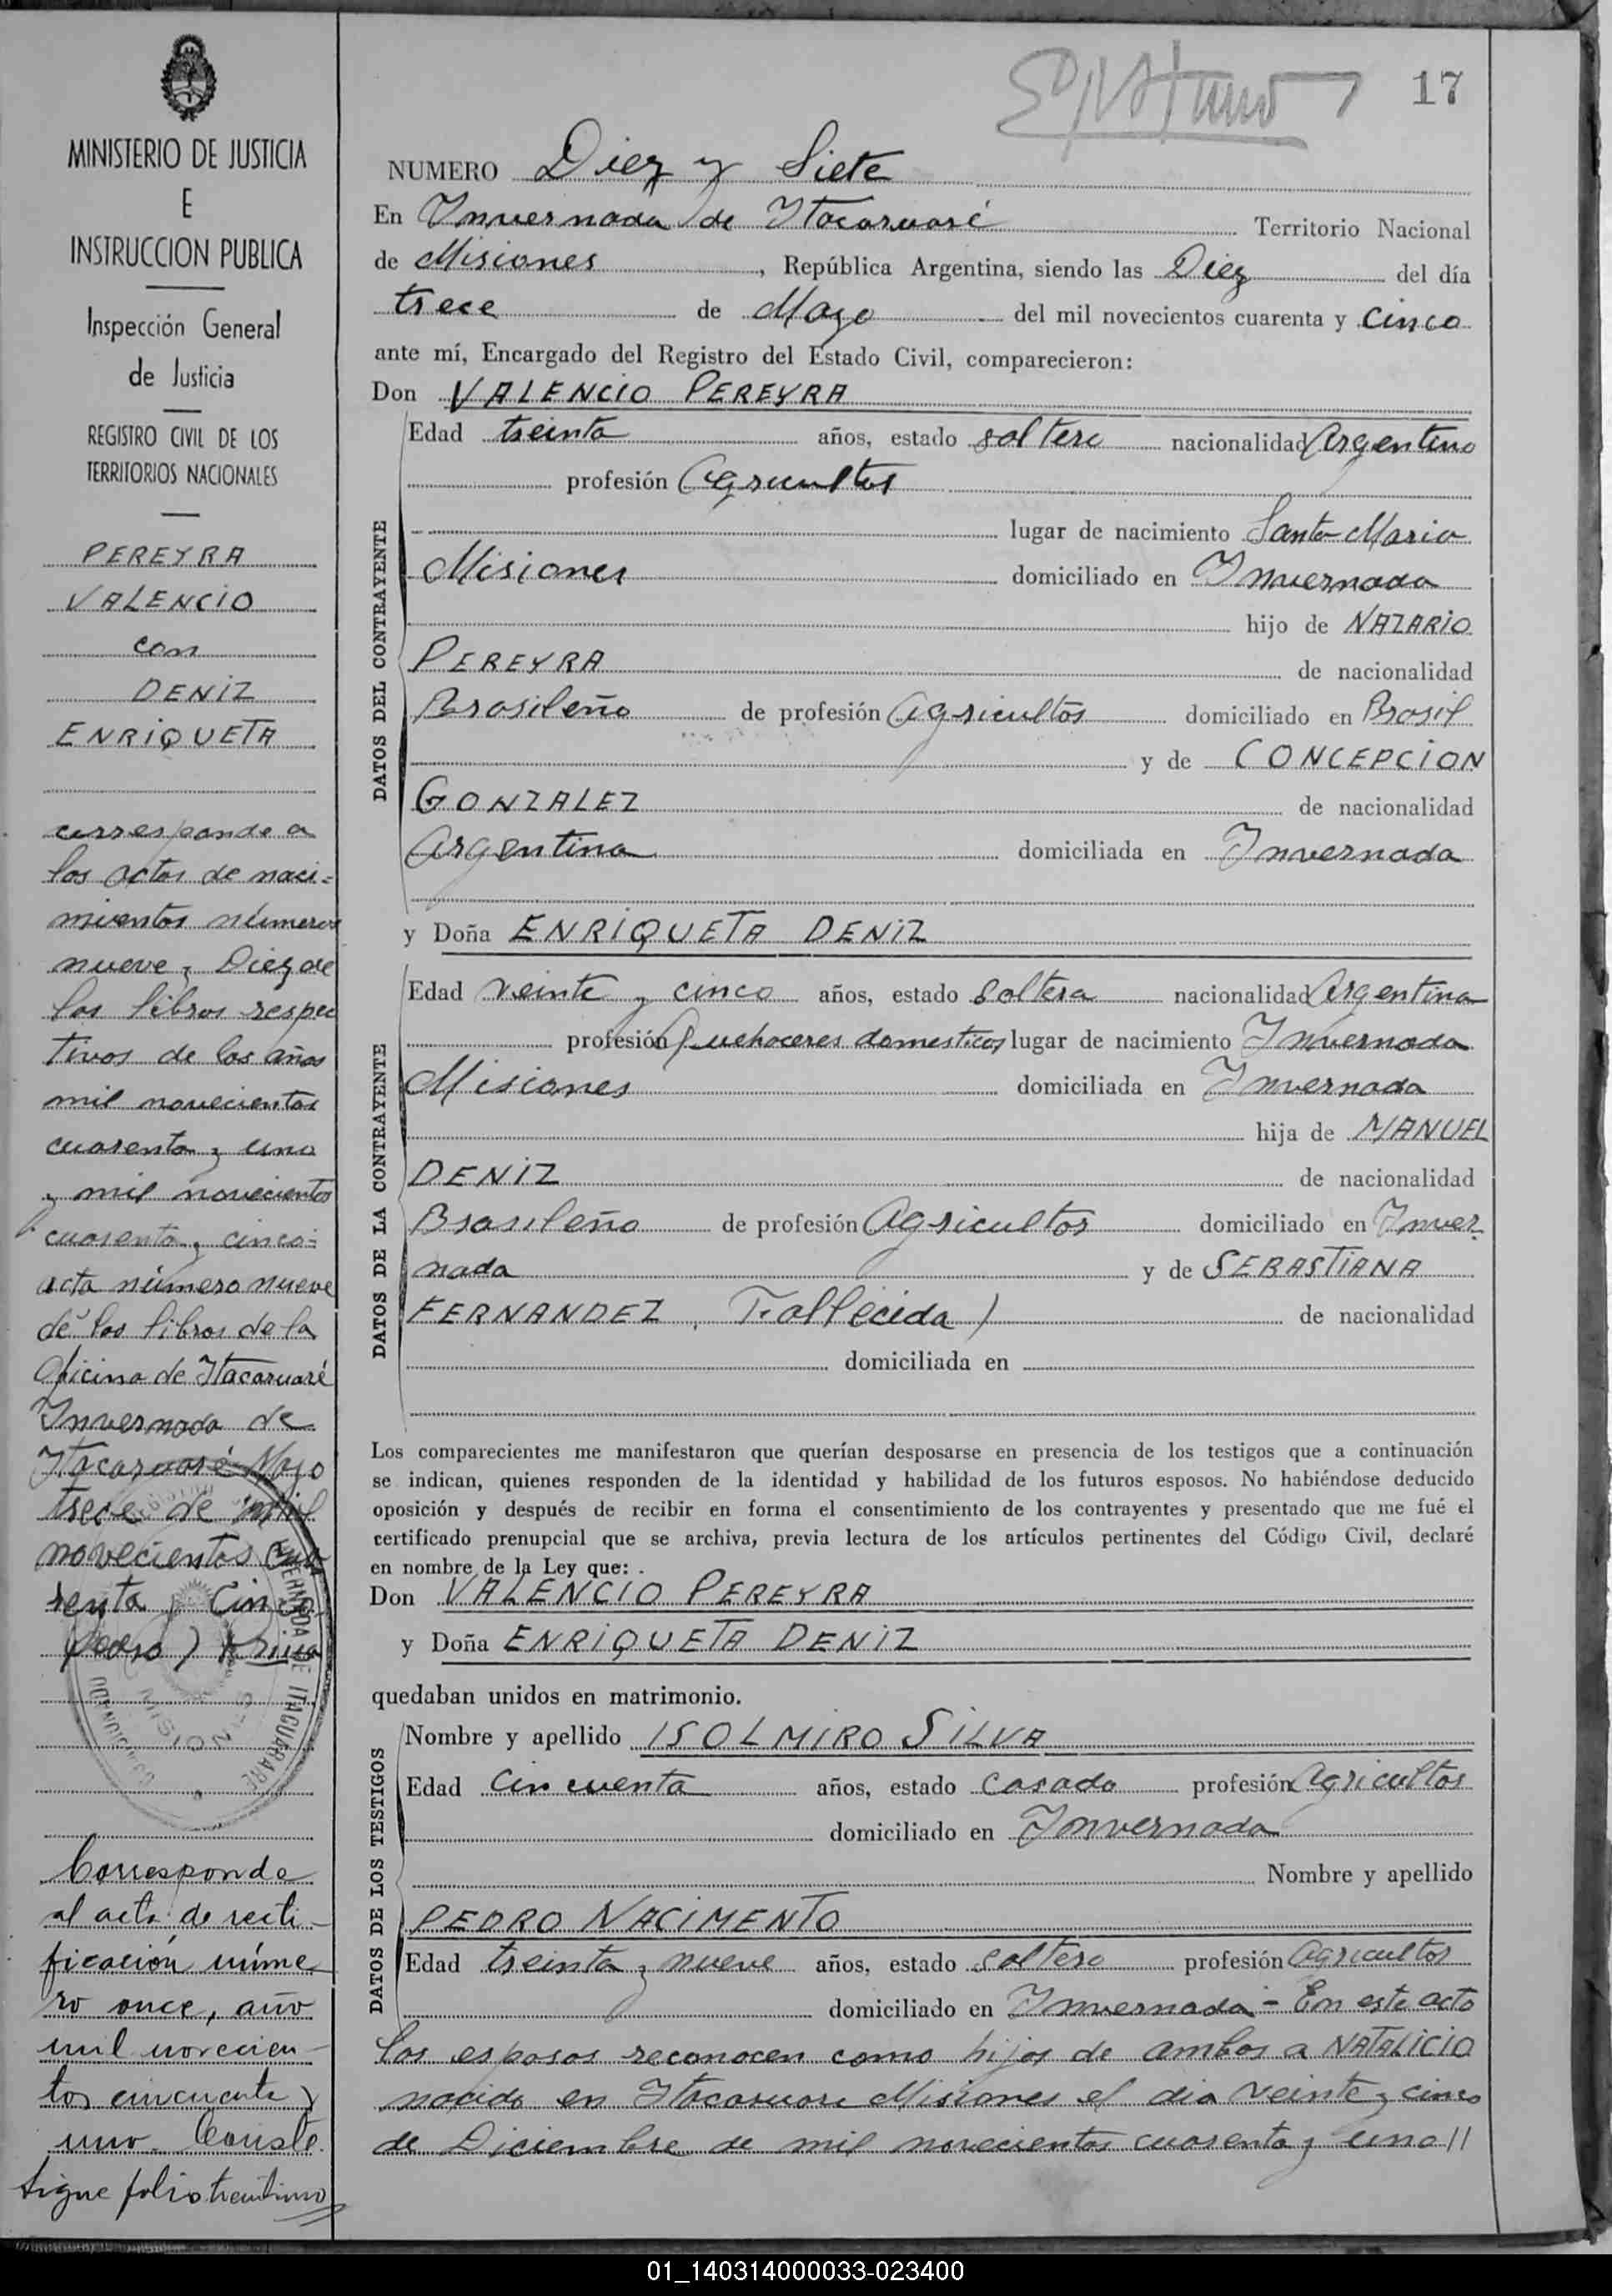 17
MINISTERIO DE JUSTICIA
E
INSTRUCCION PUBLICA
Inspección General
de Justicia
REGISTRO CIVIL DE LOS
TERRITORIOS NACIONALES
PEREYRA
VALENCIO
con
DENIZ
ENRIQUETA
corresponde a
las actas de naci=
mientos números
nueve y Diez de
los libros respec
tivos de los años
mil novecientos
cuarenta y uno
y mil novecientos
cuarenta y cinco=
acta número nueve
de los libros de la
Oficina de Itacaruaré
Invernada de
Itacaruaré Mayo
trece de mil
novecientos cua
renta y Cinco
Corresponde
al acta de recti-
ficación núme
ro once, año
mil novecien-
tos cincuenta y
uno. Conste.
Sigue folio treintiuno
NUMERO Diez y Siete
En Invernada de Itacaruaré Territorio Nacional
de Misiones, República Argentina, siendo las Diez del día
trece de Mayo del mil novecientos cuarenta y Cinco
ante mí, Encargado del Registro del Estado Civil, comparecieron:
Don VALENCIO PEREYRA
DATOS DEL CONTRAYENTE
Edad treinta años, estado soltero nacionalidad Argentino
profesión Agricultor
lugar de nacimiento Santa Maria
Misiones domiciliado en Invernada
hijo de NAZARIO
PEREYRA de nacionalidad
Brasileño de profesión Agricultor domiciliado en Brasil
y de CONCEPCION
GONZALEZ de nacionalidad
Argentina domiciliada en Invernada
y Doña ENRIQUETA DENIZ
DATOS DE LA CONTRAYENTE
Edad veinte y cinco años, estado Soltera nacionalidad Argentina
profesión Quehaceres domesticos lugar de nacimiento Invernada
Misiones domiciliada en Invernada
hija de MANUEL
DENIZ de nacionalidad
Brasileño de profesión Agricultor domiciliado en Inver
nada y de SEBASTIANA
FERNANDEZ, Fallecida) de nacionalidad
domiciliada en
Los comparecientes me manifestaron que querían desposarse en presencia de los testigos que a continuación
se indican, quienes responden de la identidad y habilidad de los futuros esposos. No habiéndose deducido
oposición y después de recibir en forma el consentimiento de los contrayentes y presentado que me fué el
certificado prenupcial que se archiva, previa lectura de los artículos pertinentes del Código Civil, declaré
en nombre de la Ley que:
Don VALENCIO PEREYRA
y Doña ENRIQUETA DENIZ
quedaban unidos en matrimonio.
DATOS DE LOS TESTIGOS
Nombre y apellido ISOLMIRO SILVA
Edad Cincuenta años, estado Casado profesión Agricultor
domiciliado en Invernada
Nombre y apellido
PEDRO NACIMENTO
Edad treinta y nueve años, estado soltero profesión Agricultor
domiciliado en Invernada - En este acto
los esposos reconocen como hijos de ambos a NATALICIO
nacido en Itacaruare Misiones el dia veinte y cinco
de Diciembre de mil novecientos cuarenta y uno//
01_140314000033-023400